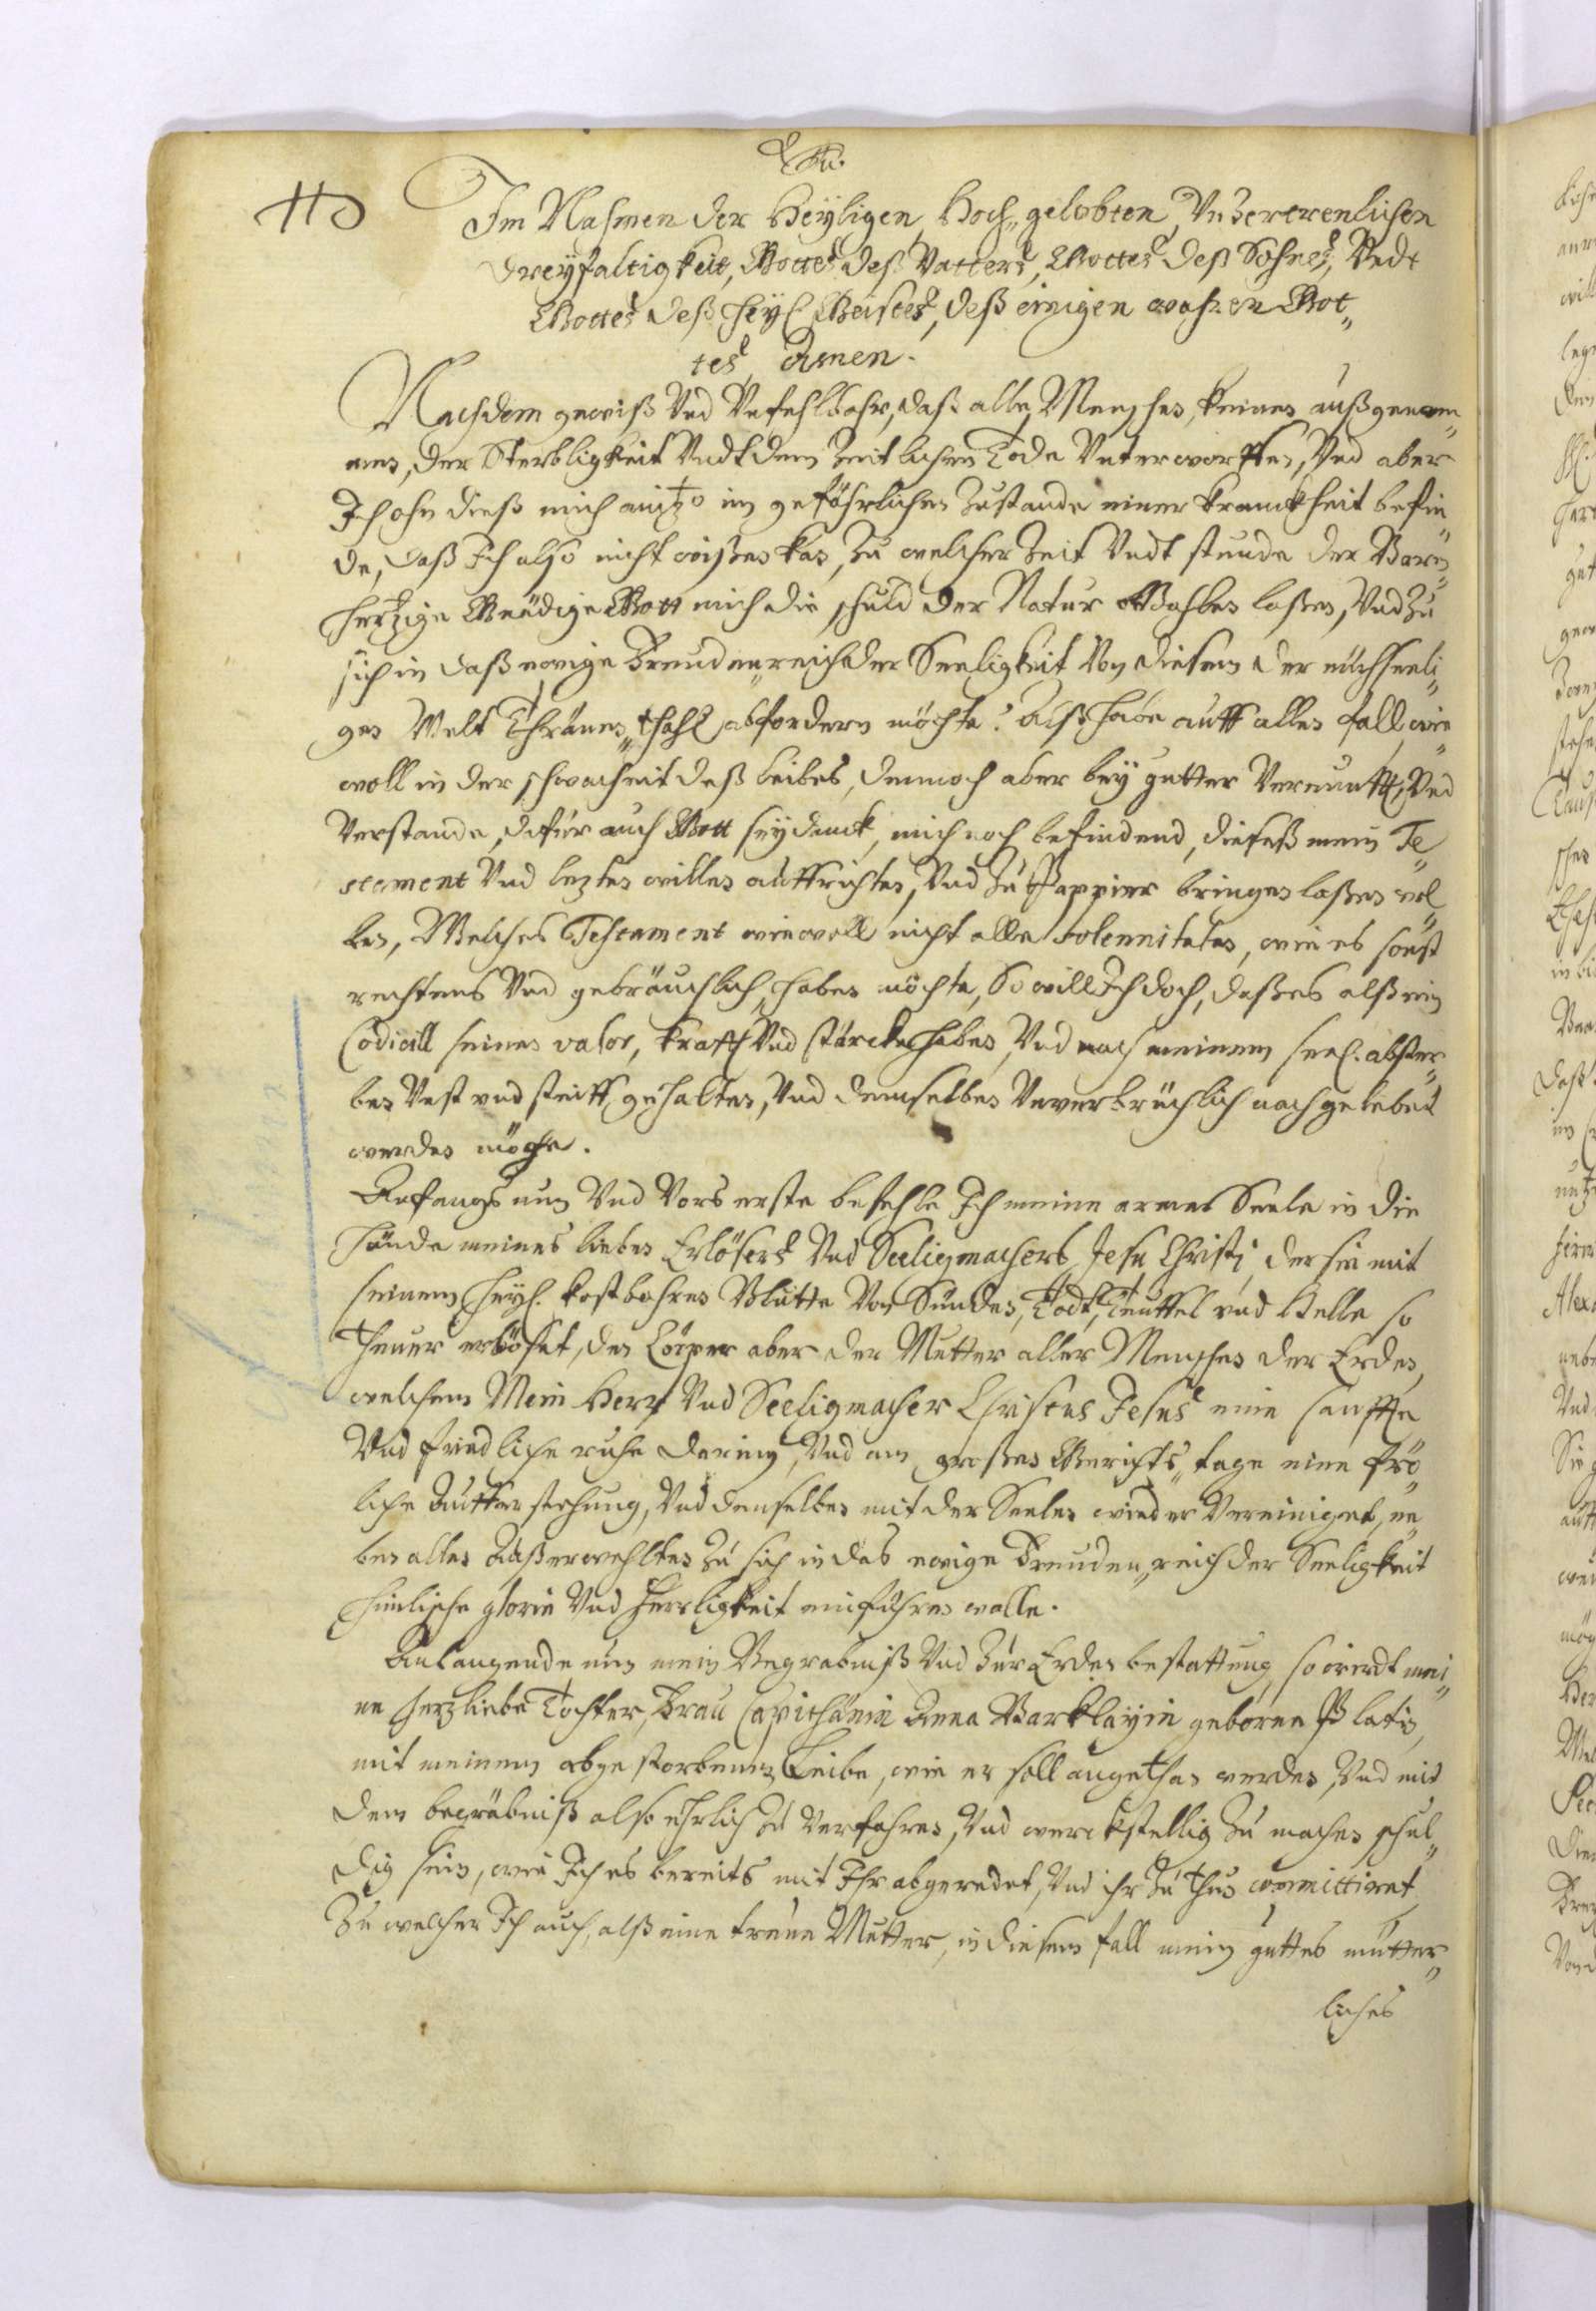 Im Nahmen der Heyligen, Hoch„gelobten, Vnzertrenlichen
Dreyfaltigkeit, Gottes deß Vatters, Gottes deß Sohnes, Vndt
Gottes deß Heyl Geistes, deß einigen wahren Got„
tes Amen.
Nachdem gewiß Vnd Vnfehlbahr, daß alle Menschen, keinen außgenom„
men, der Sterbligkeit Vndt dem Zeitlichen Tode Vnterworffen, Vnd aber
Ich ohn dieß mich anitzo im gefährlichen Zustande einer Kranckheit befin„
de, daß Ich also nicht wißen kan, zu welcher Zeit Vndt stunde der Barm„
hertzige Gnädige Gott mich die schuld der Natur Bezahlen laßen, Vnd zu
sich in daß ewige Freuden„reich der Seeligkeit Von diesem der müchseeli„
gen Welt Thränen„thahl abfordern möchte: Alß habe auff allen fall, wie„
woll in der schwacheit deß leibes, dennoch aber bey gutter Vernunfft, Vnd
Verstande, dafür auch Gott sey danck, mich noch befindend, dieseß mein Te„
stament Vnd lezten willen auffrichten, Vnd zu Pappier bringen laßen wol„
len, Welches Testament wiewoll nicht alle solennitaten, wie es sonst
rechtens Vnd gebräuchlich, haben möchte, So will Ich doch, daß es alß ein
Codicill seinen valor, krafft Vnd stärcke haben, Vnd nach meinem seel. abster„
ben Vest vnd steiff gehalten, Vnd demselben Vnverbrüchlich nachgelebet
werden möge.
Anfangs nun Vnd Vors erste befehle Ich meine arme Seele in die
hände meines lieben Erlösers Vnd Seeligmachers Jesu Christi, der sie mit
seinem heyl. kostbahren Blutte Von Sünden, Todt, Teuffel vnd Helle so
theuer erlöset, den Cörper aber der Mutter aller Menschen der Erden,
welchem Mein Herr Vnd Seeligmacher Christus Jesus eine sanffte
Vnd friedliche ruhe darinn, Vnd am großen Gerichts„tage eine frö„
liche Aufferstehung, Vnd denselben mit der Seelen wieder Vereiniget, ne„
ben allen Außerwehlten zu sich in das ewige Freuden„reich der Seeligkeit
himlische glorie Vnd Herrligkeit einführen wolle.
Anlangende nun mein Begrabniß Vnd Zur Erden bestattung, so wirdt mei„
ne hertzliebe Tochter, Frau Capithänin Anna Barklayin geborne Platin,
mit meinem abgestorbenen Leibe, wie er soll angethan werden, Vnd mit
dem begräbniß also ehrlich zu Verfahren, Vnd werckstellig zu machen schul„
dig sein, wie Ich es bereits mit Ihr abgeredet, Vnd ihr zu thun committiret
Zu welcher Ich auch, alß eine treue Mutter, in diesem fall mein guttes mütter„
liches